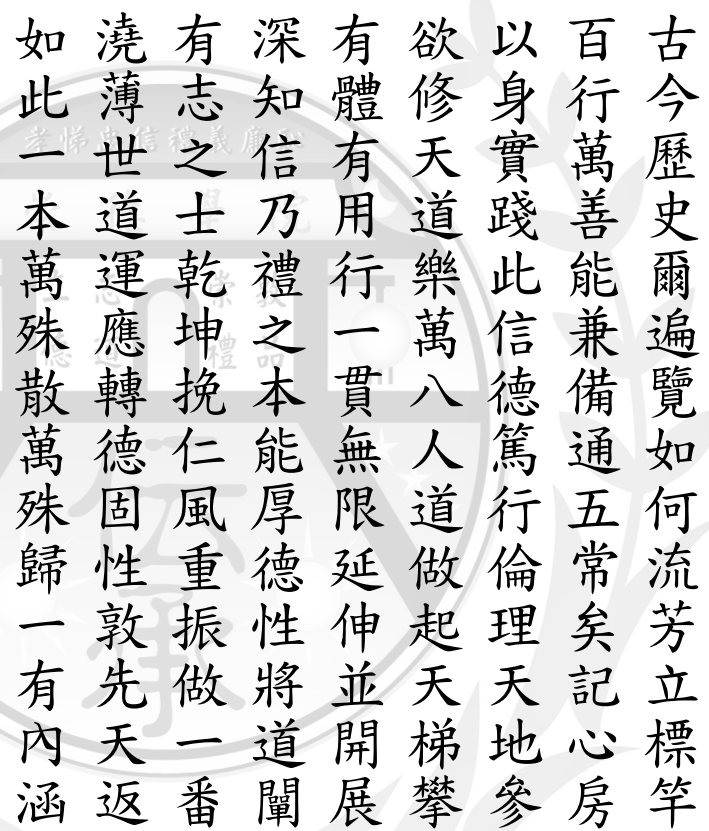 古今歷史爾遍覽如何流芳立標竿
百行萬善能兼備通五常矣記心房
以身實踐此信德篤行倫理天地參
欲修天道樂萬八人道做起天梯攀
有體有用行一貫無限延伸並開展
深知信乃禮之本能厚德性將道闡
有志之士乾坤挽仁風重振做一番
澆薄世道運應轉德固性敦先天返
如此一本萬殊散萬殊歸一有內涵